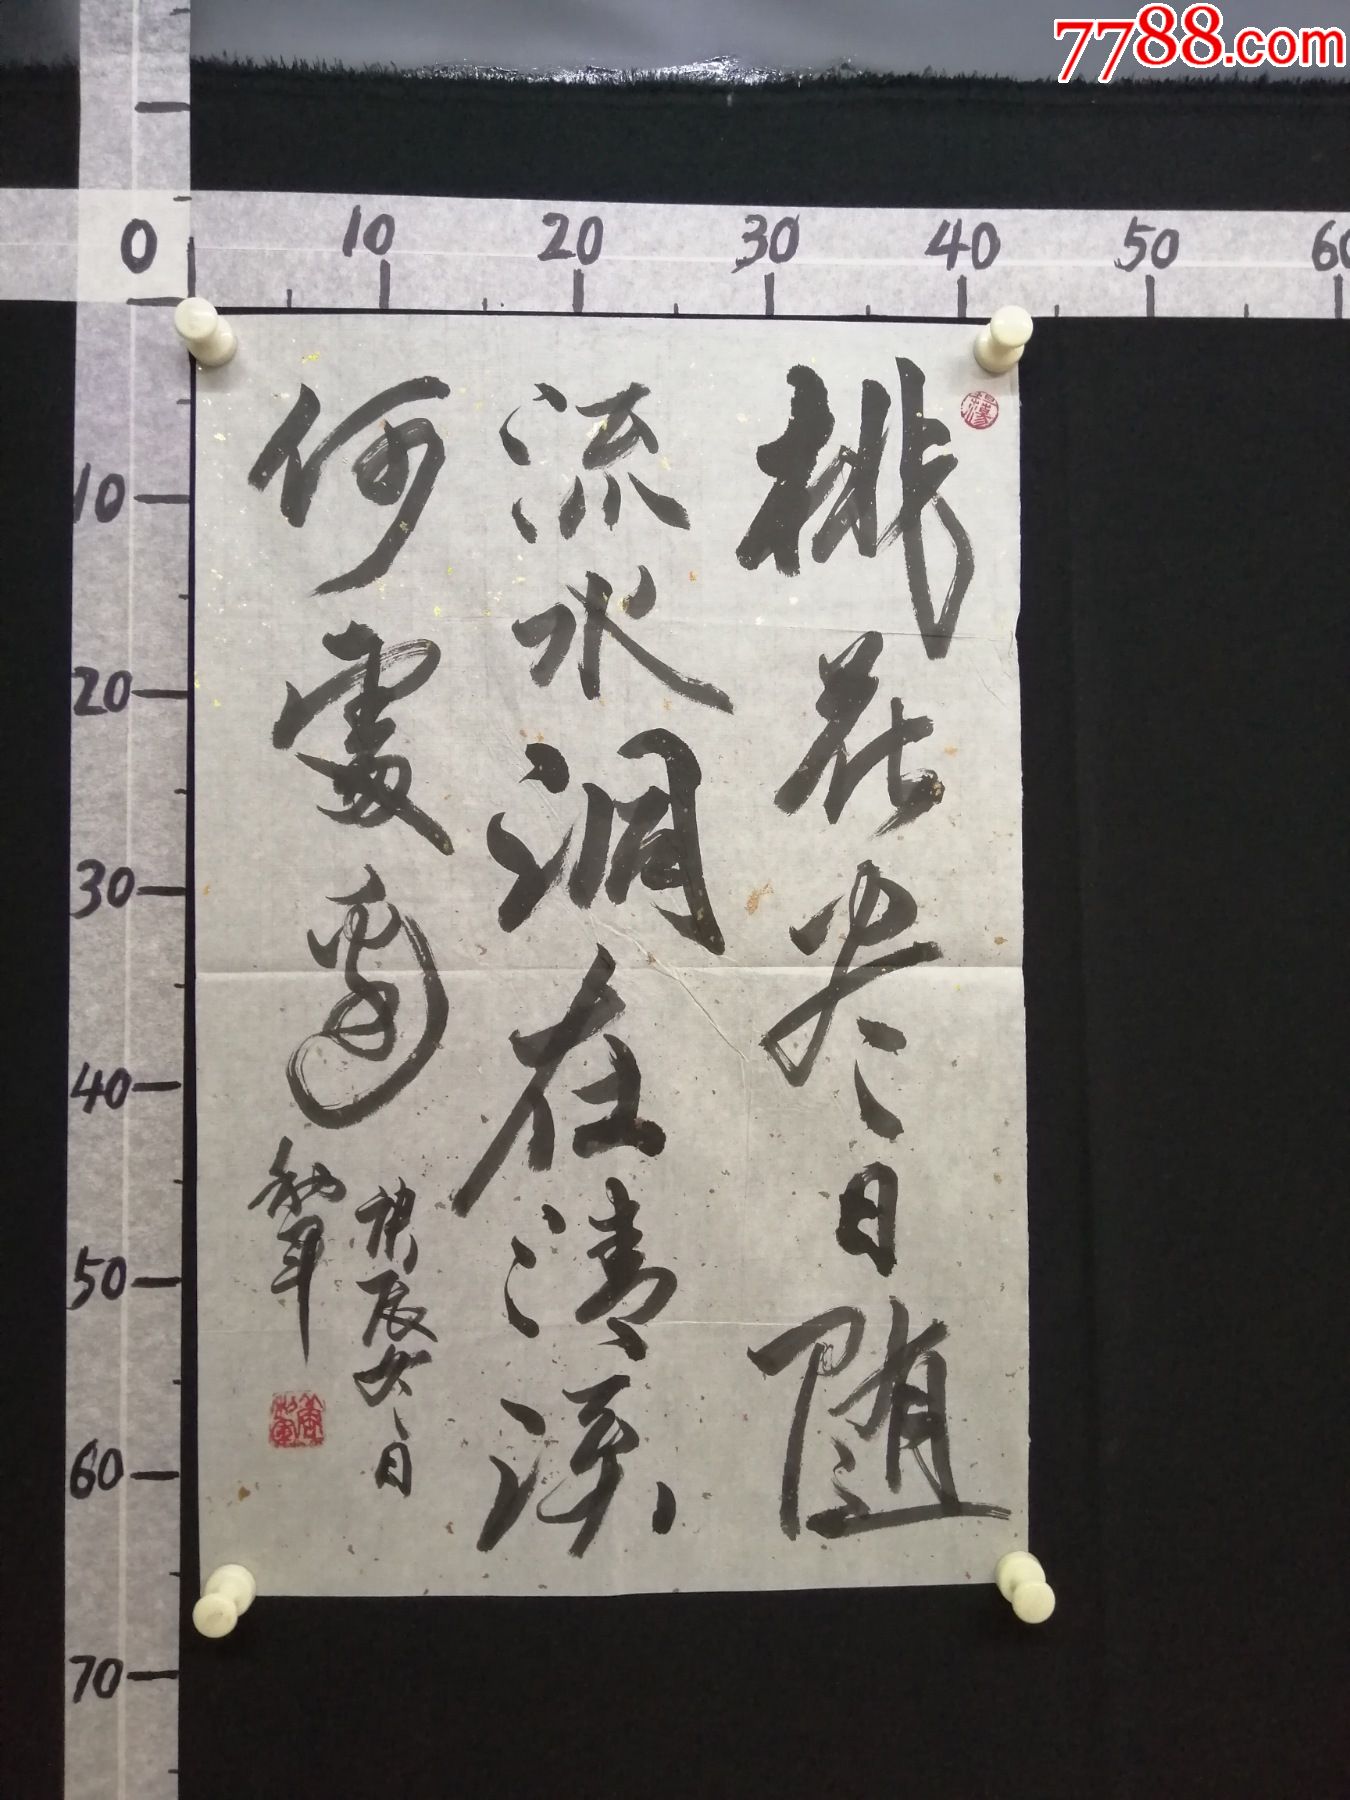 7788.com
0 10 20 30 40 50 60
10
20
30
40
50
60
70
桃花尽日随
流水洞在清溪
何處邊
庚辰冬日